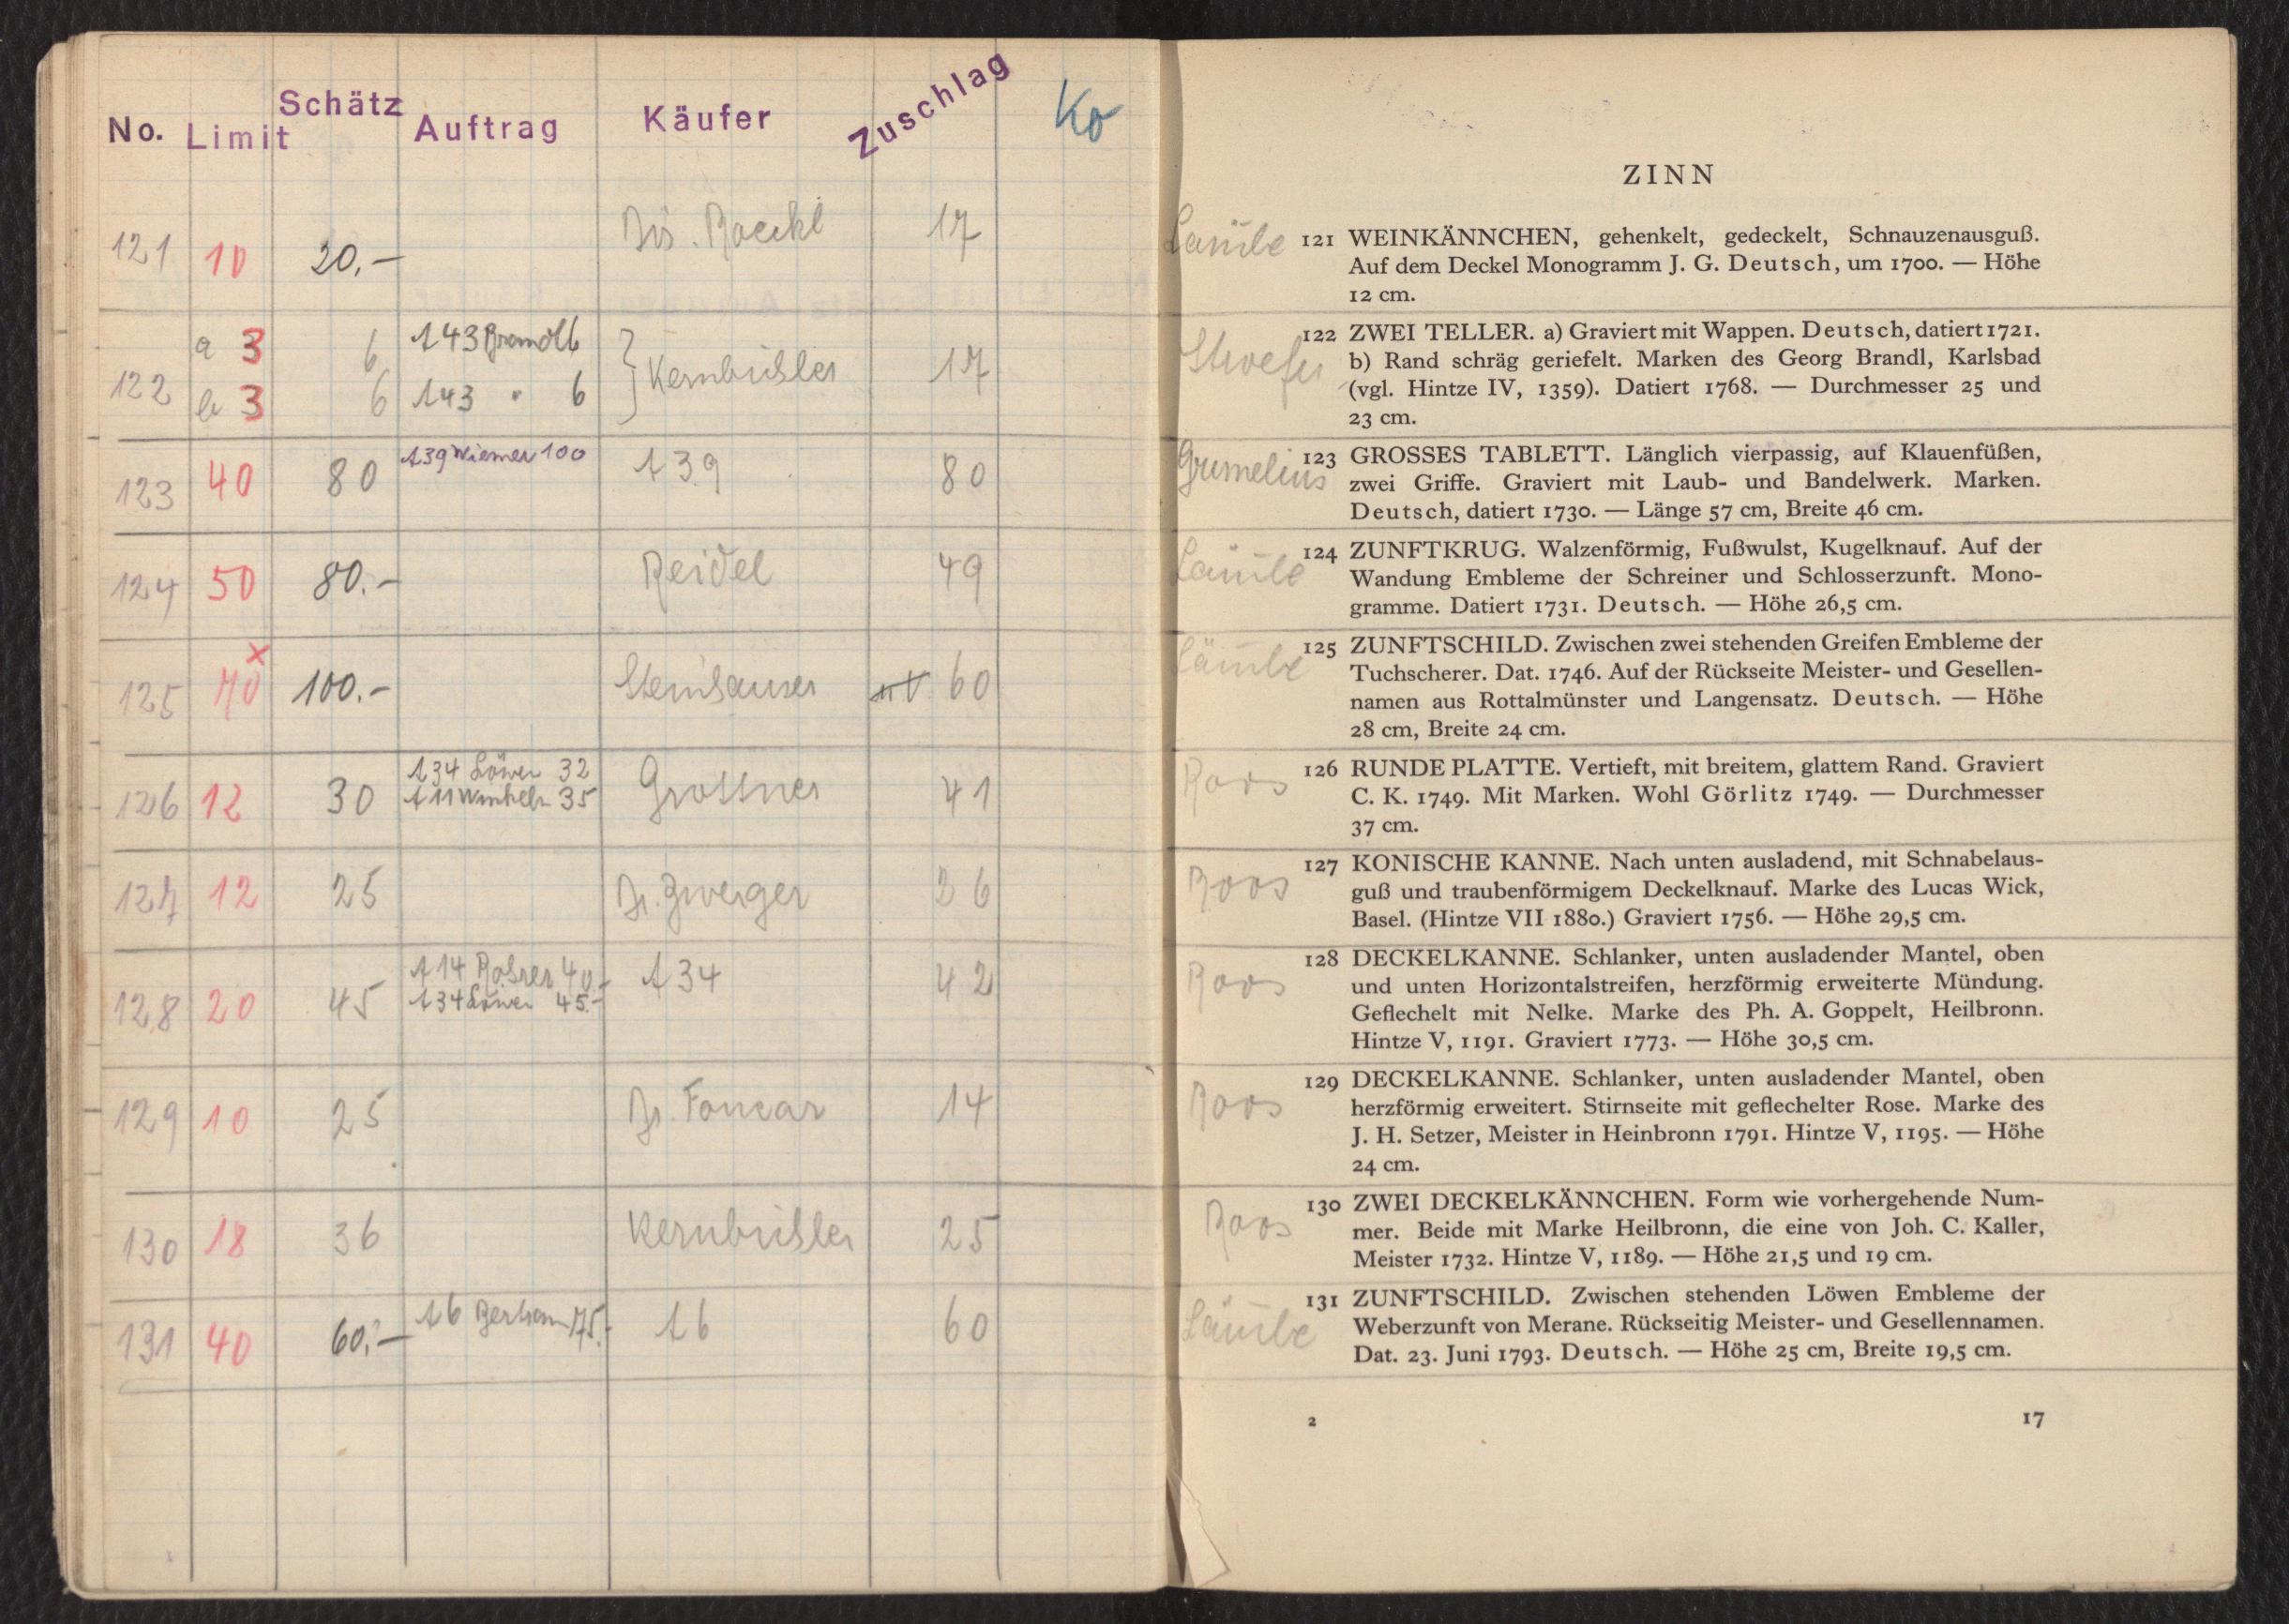 No. Limit Schätz Auftrag Käufer Zuschlag Ko
121 10 20.- 17
122 a 3 6 A43 Brandl 6
b 3 6 A43 " 6 Kernbichler 17
123 40 80 A39 Wiemer 100 A39 80
124 50 80.- Reidel 49
125 70 x 100.- Steinhauser 60
126 12 30 A34 Löwer 32
A11 35 Grossner 41
127 12 25 Dr. Zwerger 26
128 20 45 A14 Rohrer 40.-
A34 Löwer 45.- A34 42
129 10 25 Dr. 14
130 18 36 Kernbichler 25
131 40 60.- A6 Bertram 75.- A6 60
ZINN
Läuble 121 WEINKÄNNCHEN, gehenkelt, gedeckelt, Schnauzenausguß.
Auf dem Deckel Monogramm J. G. Deutsch, um 1700. — Höhe
12 cm.
122 ZWEI TELLER. a) Graviert mit Wappen. Deutsch, datiert 1721.
b) Rand schräg geriefelt. Marken des Georg Brandl, Karlsbad
(vgl. Hintze IV, 1359). Datiert 1768. — Durchmesser 25 und
23 cm.
Grumelius 123 GROSSES TABLETT. Länglich vierpassig, auf Klauenfüßen,
zwei Griffe. Graviert mit Laub- und Bandelwerk. Marken.
Deutsch, datiert 1730. — Länge 57 cm, Breite 46 cm.
Läuble 124 ZUNFTKRUG. Walzenförmig, Fußwulst, Kugelknauf. Auf der
Wandung Embleme der Schreiner und Schlosserzunft. Mono-
gramme. Datiert 1731. Deutsch. — Höhe 26,5 cm.
Läuble 125 ZUNFTSCHILD. Zwischen zwei stehenden Greifen Embleme der
Tuchscherer. Dat. 1746. Auf der Rückseite Meister- und Gesellen-
namen aus Rottalmünster und Langensatz. Deutsch. — Höhe
28 cm, Breite 24 cm.
Roos 126 RUNDE PLATTE. Vertieft, mit breitem, glattem Rand. Graviert
C. K. 1749. Mit Marken. Wohl Görlitz 1749. — Durchmesser
37 cm.
Roos 127 KONISCHE KANNE. Nach unten ausladend, mit Schnabelaus-
guß und traubenförmigem Deckelknauf. Marke des Lucas Wick,
Basel. (Hintze VII 1880.) Graviert 1756. — Höhe 29,5 cm.
Roos 128 DECKELKANNE. Schlanker, unten ausladender Mantel, oben
und unten Horizontalstreifen, herzförmig erweiterte Mündung.
Geflechelt mit Nelke. Marke des Ph. A. Goppelt, Heilbronn.
Hintze V, 1191. Graviert 1773. — Höhe 30,5 cm.
Roos 129 DECKELKANNE. Schlanker, unten ausladender Mantel, oben
herzförmig erweitert. Stirnseite mit geflechelter Rose. Marke des
J. H. Setzer, Meister in Heinbronn 1791. Hintze V, 1195. — Höhe
24 cm.
Roos 130 ZWEI DECKELKÄNNCHEN. Form wie vorhergehende Num-
mer. Beide mit Marke Heilbronn, die eine von Joh. C. Kaller,
Meister 1732. Hintze V, 1189. — Höhe 21,5 und 19 cm.
Läuble 131 ZUNFTSCHILD. Zwischen stehenden Löwen Embleme der
Weberzunft von Merane. Rückseitig Meister- und Gesellennamen.
Dat. 23. Juni 1793. Deutsch. — Höhe 25 cm, Breite 19,5 cm.
2 17